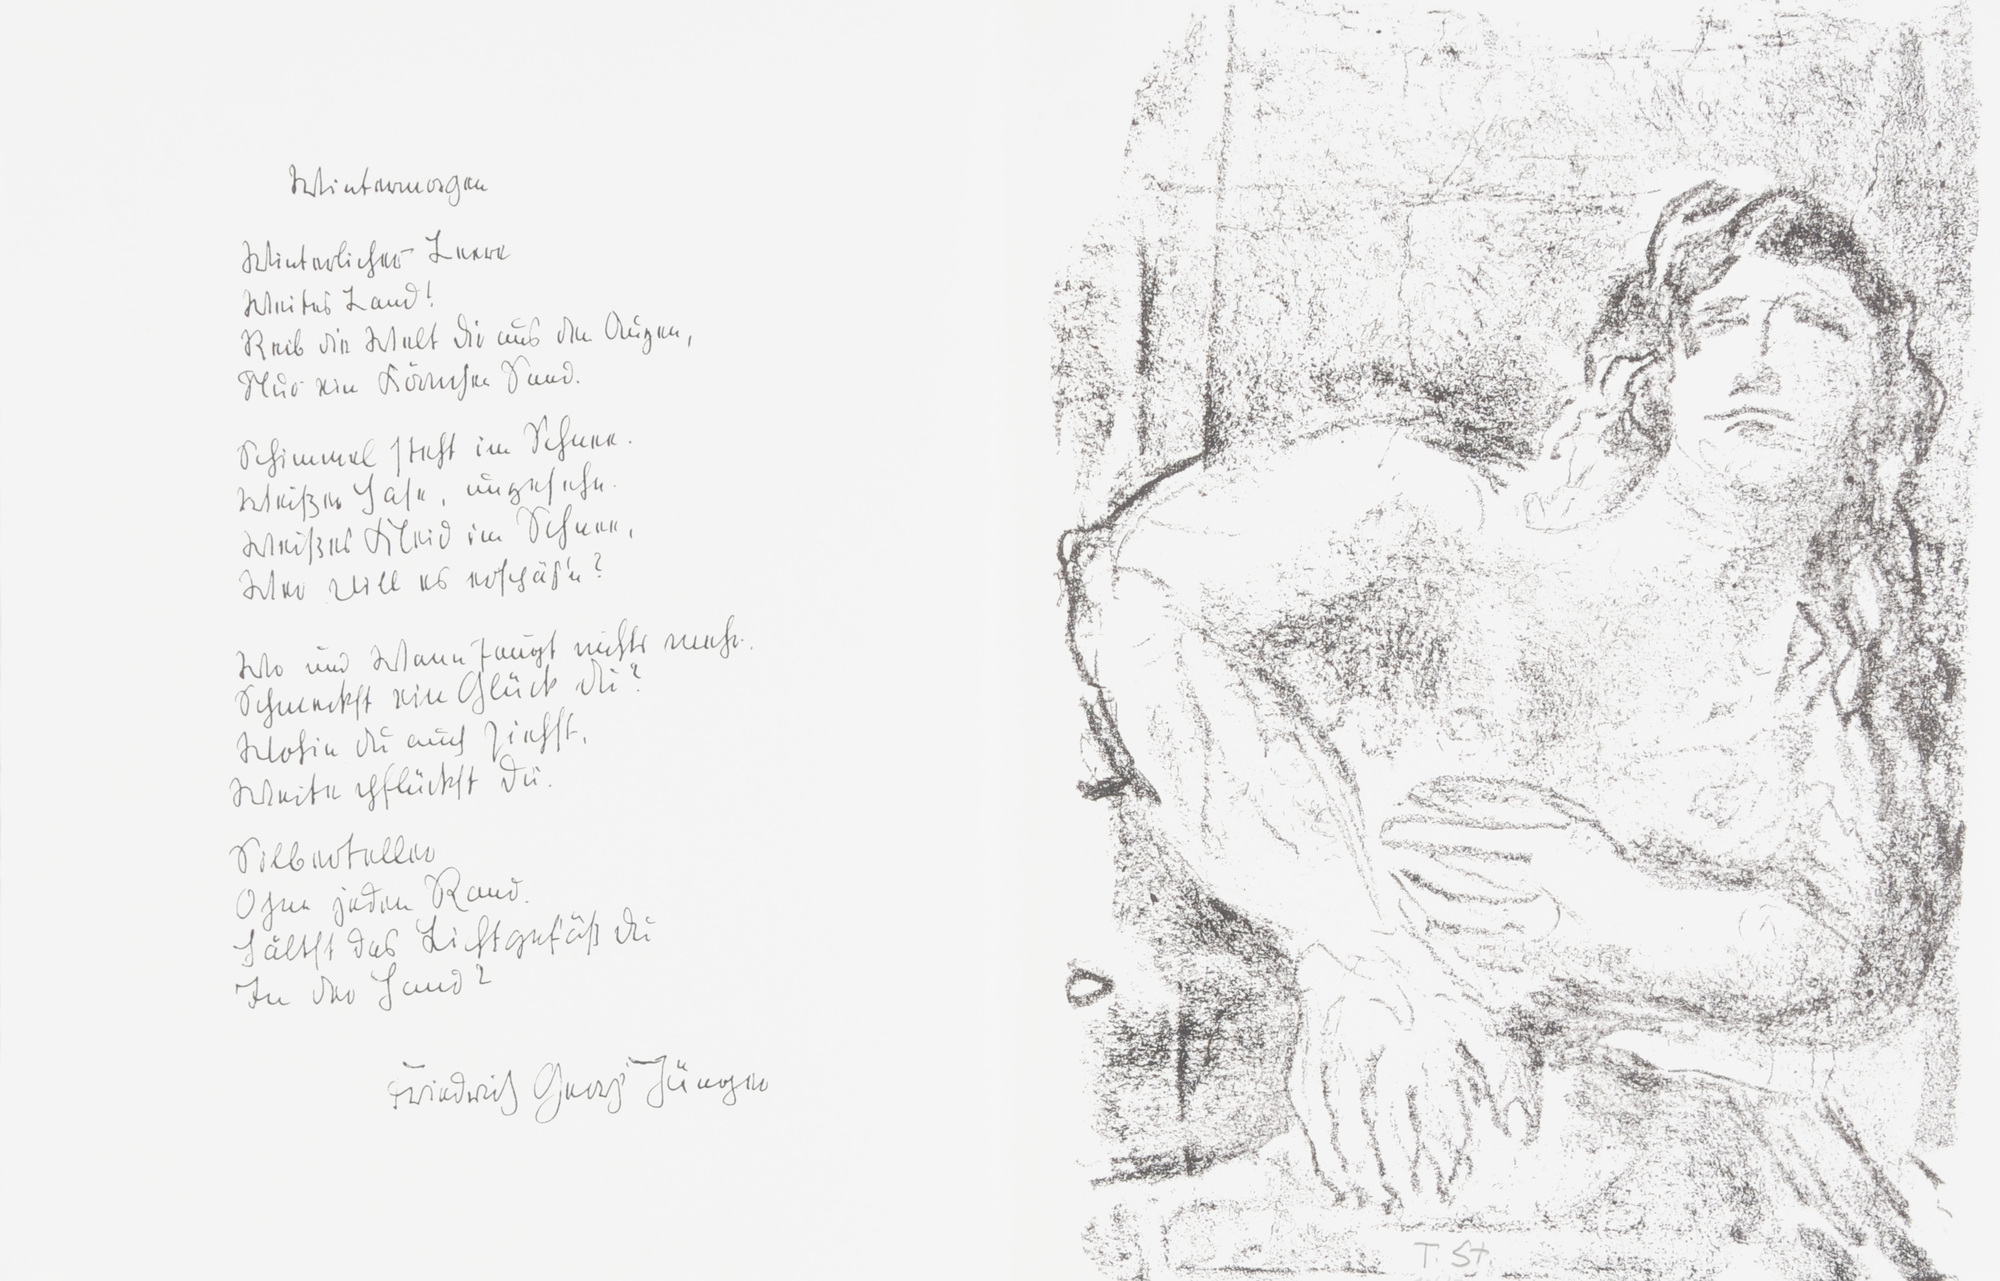 Wintermorgen
Winterlicher Leere
Weites Land!
Reib die Welt dir aus den Augen,
Nur ein Körnchen Sand.
Schimmel steht im Schnee.
Weißer Hase, ungesehn.
Weißes Kleid im Schnee,
Wer will es erspähn?
Wo und Wann taugt nichts mehr.
Schmeckst ein Glück du?
Wohin du auch ziehst,
Weite pflückst du.
Silberteller
Ohne jeden Rand.
Hältst das Lichtgefäß du
In der Hand?
Friedrich Georg Jünger
T. St.